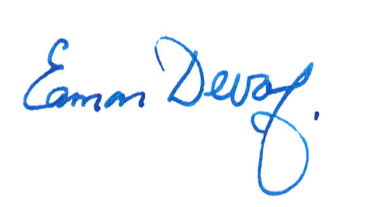 Eamon Devoy.